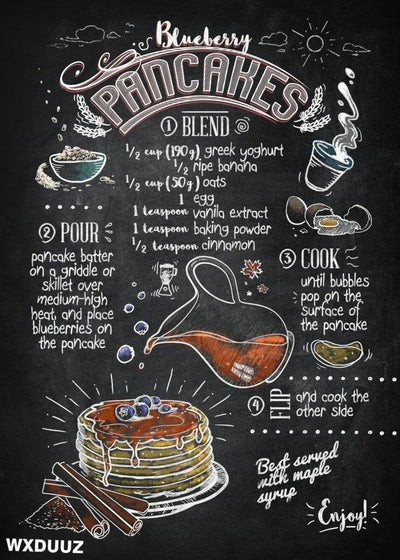 Blueberry
PANCAKES
1 BLEND
1/2 cup (190g) greek yoghurt
1/2 ripe banana
1/2 cup (50g) oats
1 egg
1 teaspoon vanilla extract
1 teaspoon baking powder
1/2 teaspoon cinnamon
2 POUR
pancake batter
on a griddle or
skillet over
medium-high
heat, and place
blueberries on
the pancake
3 COOK
until bubbles
pop on the
surface of
the pancake
4 FLIP and cook the
other side
Best served
with maple
syrup
Enjoy!
WXDUUZ